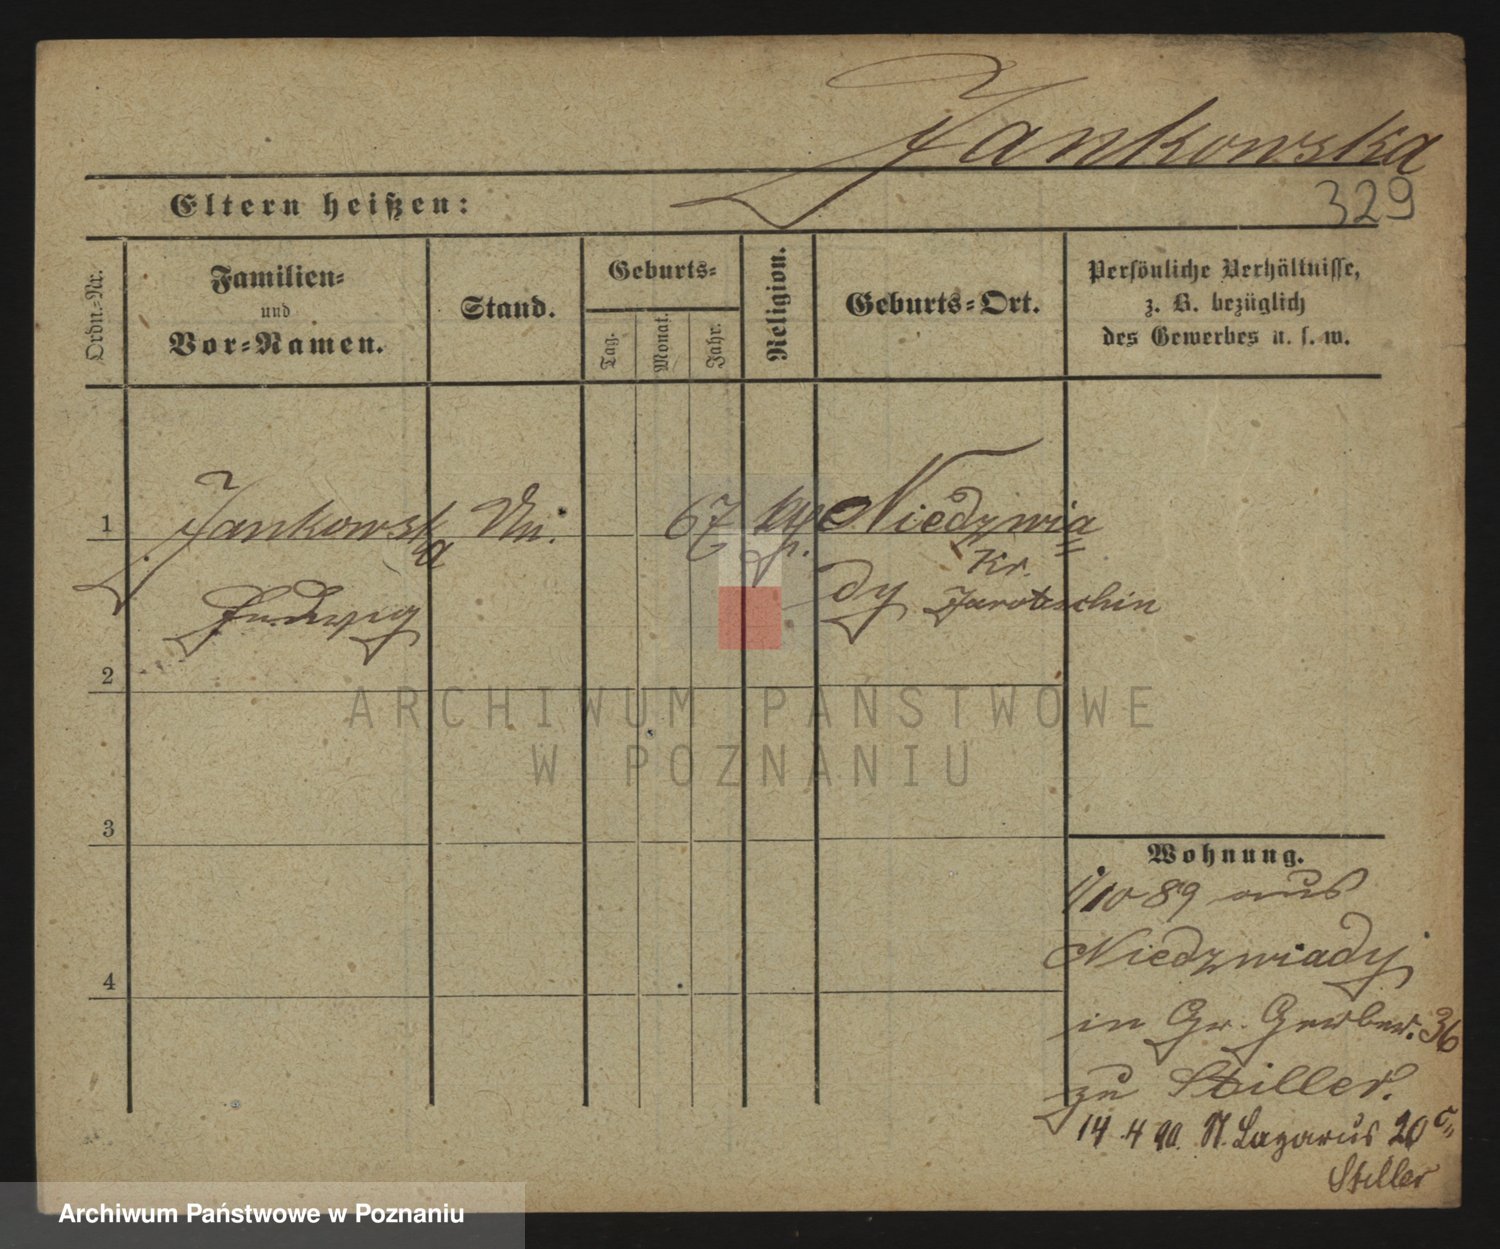 Jankowska
329
Eltern heißen:
Ordn.-Nr.
Familien-
und
Vor-Namen.
Stand.
Geburts-
Tag.
Monat.
Jahr.
Religion.
Geburts-Ort.
Persönliche Verhältnisse,
z. B. bezüglich
des Gewerbes u. s. w.
1 Jankowska 67 Niedzwia
Kr.
Ludwig dy Jarotschin
2
ARCHIWUM PAŃSTWOWE
W POZNANIU
3
4
Wohnung.
1/10 89 aus
Niedzwiady
in Gr. Gerber. 36
zu Stiller.
14.4 90. St. Lazarus 20
Stiller
Archiwum Państwowe w Poznaniu